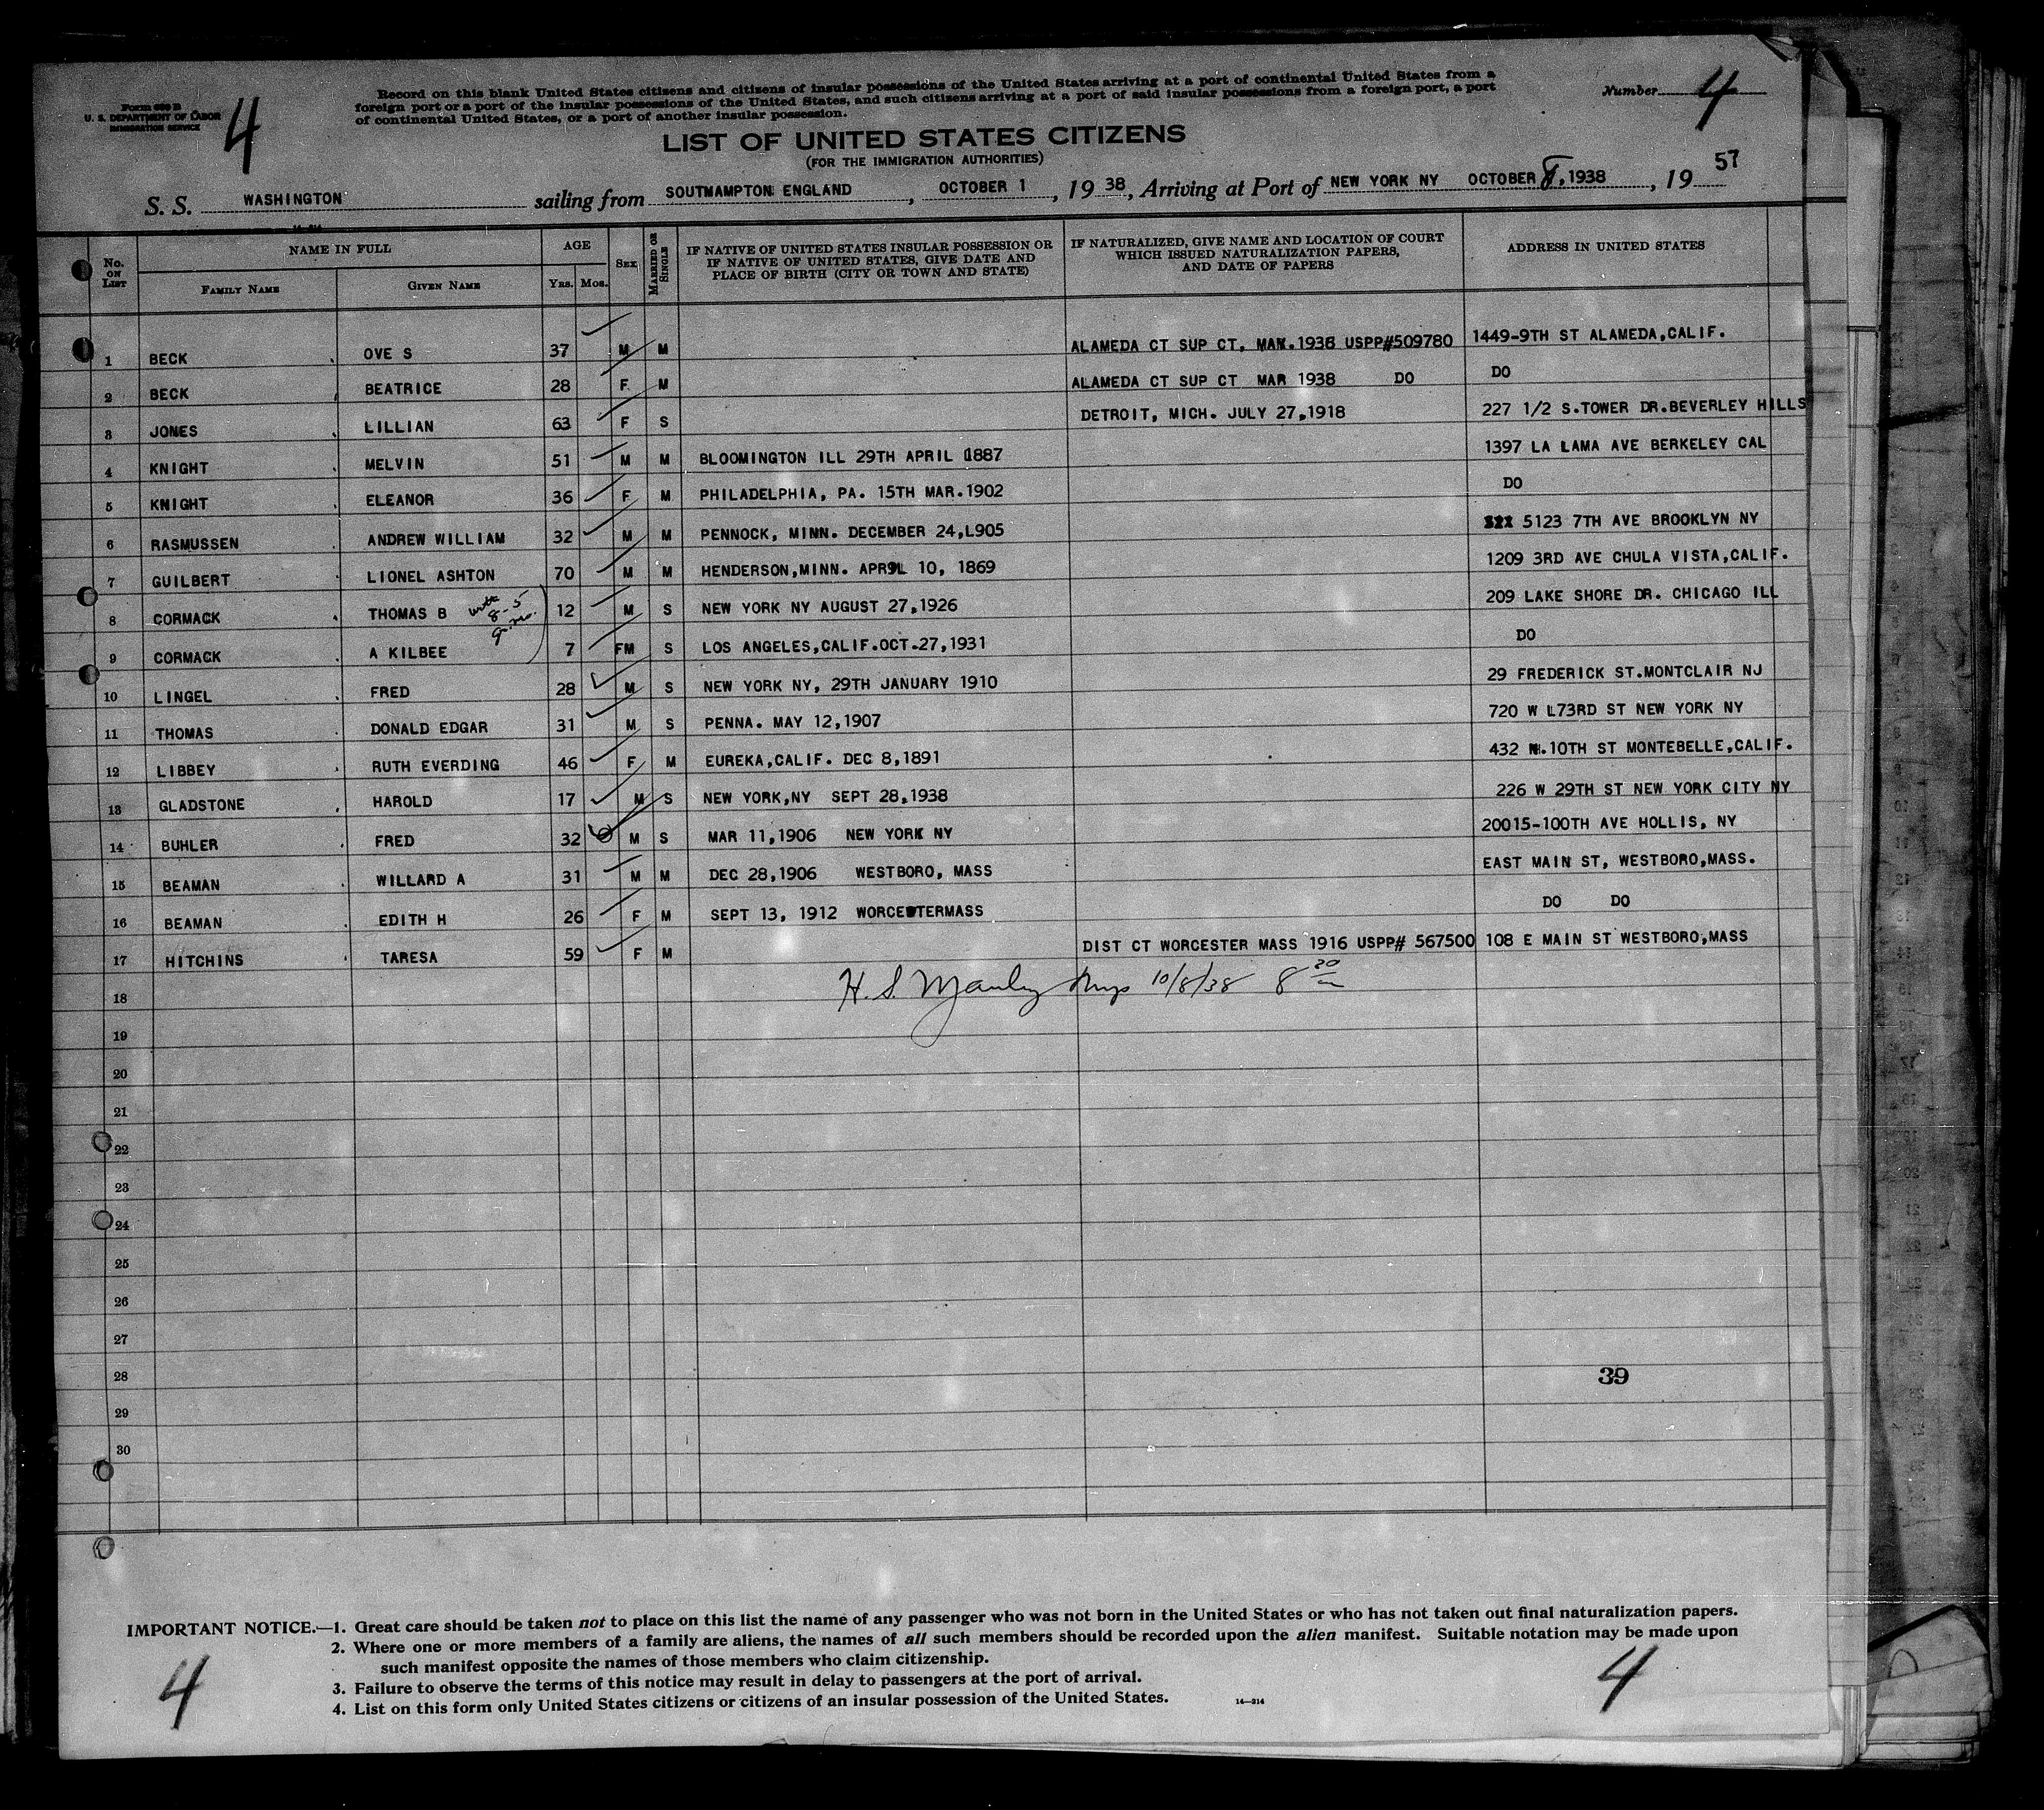 Form 630 B
U. S. DEPARTMENT OF LABOR
IMMIGRATION SERVICE
4
Record on this blank United States citizens and citizens of insular possessions of the United States arriving at a port of continental United States from a
foreign port or a port of the insular possessions of the United States, and such citizens arriving at a port of said insular possessions from a foreign port, a port
of continental United States, or a port of another insular possession.
Number 4
LIST OF UNITED STATES CITIZENS
(FOR THE IMMIGRATION AUTHORITIES)
57
S. S. WASHINGTON sailing from SOUTMAMPTON ENGLAND, OCTOBER 1, 19 38, Arriving at Port of NEW YORK NY OCTOBER 8, 1938, 19
14-314
No. ON LIST
NAME IN FULL
FAMILY NAME
GIVEN NAME
AGE
YRS. MOS.
SEX
MARRIED OR SINGLE
IF NATIVE OF UNITED STATES INSULAR POSSESSION OR
IF NATIVE OF UNITED STATES, GIVE DATE AND
PLACE OF BIRTH (CITY OR TOWN AND STATE)
IF NATURALIZED, GIVE NAME AND LOCATION OF COURT
WHICH ISSUED NATURALIZATION PAPERS,
AND DATE OF PAPERS
ADDRESS IN UNITED STATES
1 BECK OVE S 37 M M ALAMEDA CT SUP CT, MAR.1938 USPP#509780 1449-9TH ST ALAMEDA,CALIF.
2 BECK BEATRICE 28 F M ALAMEDA CT SUP CT MAR 1938 DO DO
3 JONES LILLIAN 63 F S DETROIT, MICH. JULY 27,1918 227 1/2 S.TOWER DR.BEVERLEY HILLS
4 KNIGHT MELVIN 51 M M BLOOMINGTON ILL 29TH APRIL 1887 1397 LA LAMA AVE BERKELEY CAL
5 KNIGHT ELEANOR 36 F M PHILADELPHIA, PA. 15TH MAR.1902 DO
6 RASMUSSEN ANDREW WILLIAM 32 M M PENNOCK, MINN. DECEMBER 24,L905 5123 7TH AVE BROOKLYN NY
7 GUILBERT LIONEL ASHTON 70 M M HENDERSON,MINN. APRIL 10, 1869 1209 3RD AVE CHULA VISTA,CALIF.
8 CORMACK THOMAS B with 8-5 12 M S NEW YORK NY AUGUST 27,1926 209 LAKE SHORE DR. CHICAGO ILL
9 CORMACK A KILBEE 7 FM S LOS ANGELES,CALIF.OCT.27,1931 DO
10 LINGEL FRED 28 M S NEW YORK NY, 29TH JANUARY 1910 29 FREDERICK ST.MONTCLAIR NJ
11 THOMAS DONALD EDGAR 31 M S PENNA. MAY 12,1907 720 W L73RD ST NEW YORK NY
12 LIBBEY RUTH EVERDING 46 F M EUREKA,CALIF. DEC 8,1891 432 N.10TH ST MONTEBELLE,CALIF.
13 GLADSTONE HAROLD 17 M S NEW YORK,NY SEPT 28,1938 226 W 29TH ST NEW YORK CITY NY
14 BUHLER FRED 32 M S MAR 11,1906 NEW YORK NY 20015-100TH AVE HOLLIS, NY
15 BEAMAN WILLARD A 31 M M DEC 28,1906 WESTBORO, MASS EAST MAIN ST, WESTBORO,MASS.
16 BEAMAN EDITH H 26 F M SEPT 13, 1912 WORCESTERMASS DO DO
17 HITCHINS TARESA 59 F M DIST CT WORCESTER MASS 1916 USPP# 567500 108 E MAIN ST WESTBORO,MASS
18 H. S. Manley Insp 10/8/38 8 30
19
20
21
22
23
24
25
26
27
28 39
29
30
IMPORTANT NOTICE.—1. Great care should be taken not to place on this list the name of any passenger who was not born in the United States or who has not taken out final naturalization papers.
2. Where one or more members of a family are aliens, the names of all such members should be recorded upon the alien manifest. Suitable notation may be made upon
such manifest opposite the names of those members who claim citizenship.
3. Failure to observe the terms of this notice may result in delay to passengers at the port of arrival.
4. List on this form only United States citizens or citizens of an insular possession of the United States.
14—314
4
4